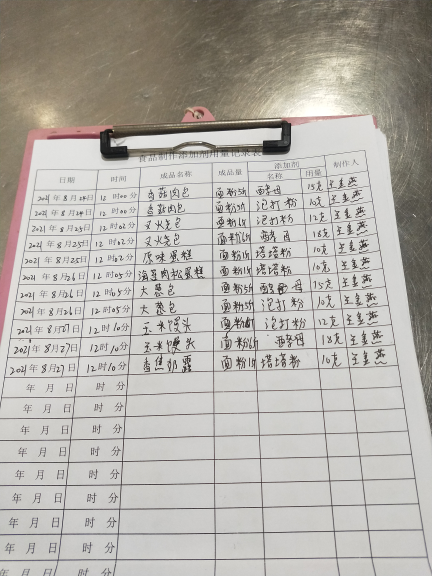 食品制作添加剂用量记录表
日期 时间 成品名称 成品量 添加剂 制作人
名称 用量
2021年8月24日 12时00分 香菇肉包 面粉5斤 酵母 15克 王金燕
2021年8月24日 12时00分 香菇肉包 面粉5斤 泡打粉 10克 王金燕
2021年8月25日 12时02分 叉火包 面粉6斤 泡打粉 12克 王金燕
2021年8月25日 12时02分 叉火包 面粉6斤 酵母 18克 王金燕
2021年8月25日 12时02分 原味蛋糕 面粉1斤 塔塔粉 10克 王金燕
2021年8月26日 12时05分 海苔肉松蛋糕 面粉1斤 塔塔粉 10克 王金燕
2021年8月26日 12时05分 大葱包 面粉5斤 酵母 15克 王金燕
2021年8月26日 12时05分 大葱包 面粉5斤 泡打粉 10克 王金燕
2021年8月27日 12时10分 玉米馒头 面粉6斤 泡打粉 12克 王金燕
2021年8月27日 12时10分 玉米馒头 面粉6斤 酵母 18克 王金燕
2021年8月27日 12时10分 香蕉奶露 面粉1斤 塔塔粉 10克 王金燕
年 月 日 时 分
年 月 日 时 分
年 月 日 时 分
年 月 日 时 分
年 月 日 时 分
年 月 日 时 分
年 月 日 时 分
年 月 日 时 分